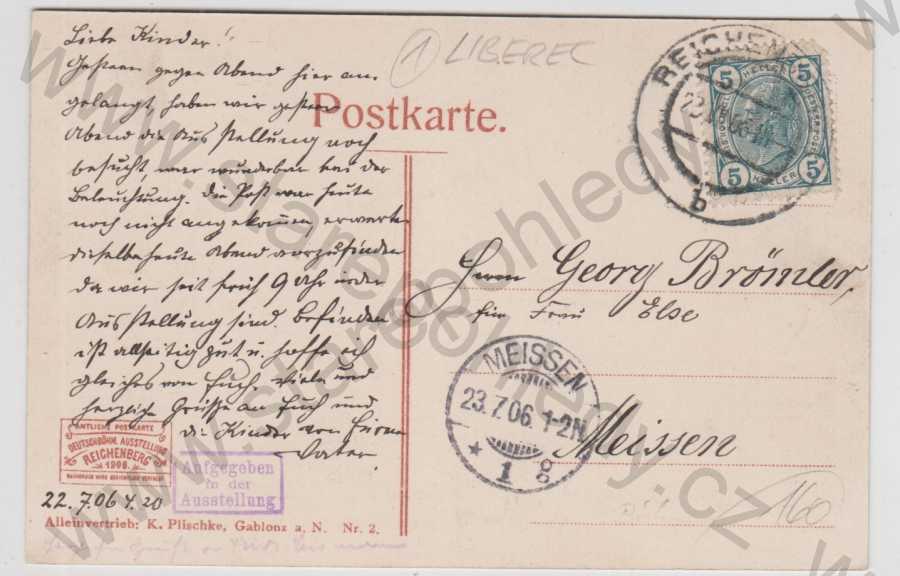 Liebe Kinder!
Gestern gegen Abend hier an-
gelangt, haben wir gestern
Abend die Ausstellung noch
besucht, war wunderbar bei der
Beleuchtung. Die Post war heute
noch nicht angekommen, erwarte
dieselbe heute Abend vorzufinden
da wir seit früh 9 Uhr in der
Ausstellung sind. Befinden
ist allseitig gut u. hoffe ich
gleiches von Euch. Viele und
herzliche Grüsse an Euch und
die Kinder von Eurem
Vater.
22.7.06 4.20
1 LIBEREC
Postkarte.
REICHENB
22. 06
b
5 HELLER 5
5 HELLER 5
Herrn Georg Brömler,
für Frau Else
Meissen
MEISSEN
23.7.06. 1-2N.
* 1 g
AMTLICHE POSTKARTE
DEUTSCHBÖHM. AUSSTELLUNG
REICHENBERG
1906.
Aufgegeben
in der
Ausstellung
Alleinvertrieb: K. Plischke, Gablonz a. N. Nr. 2.
160
www.stare-pohledy.cz